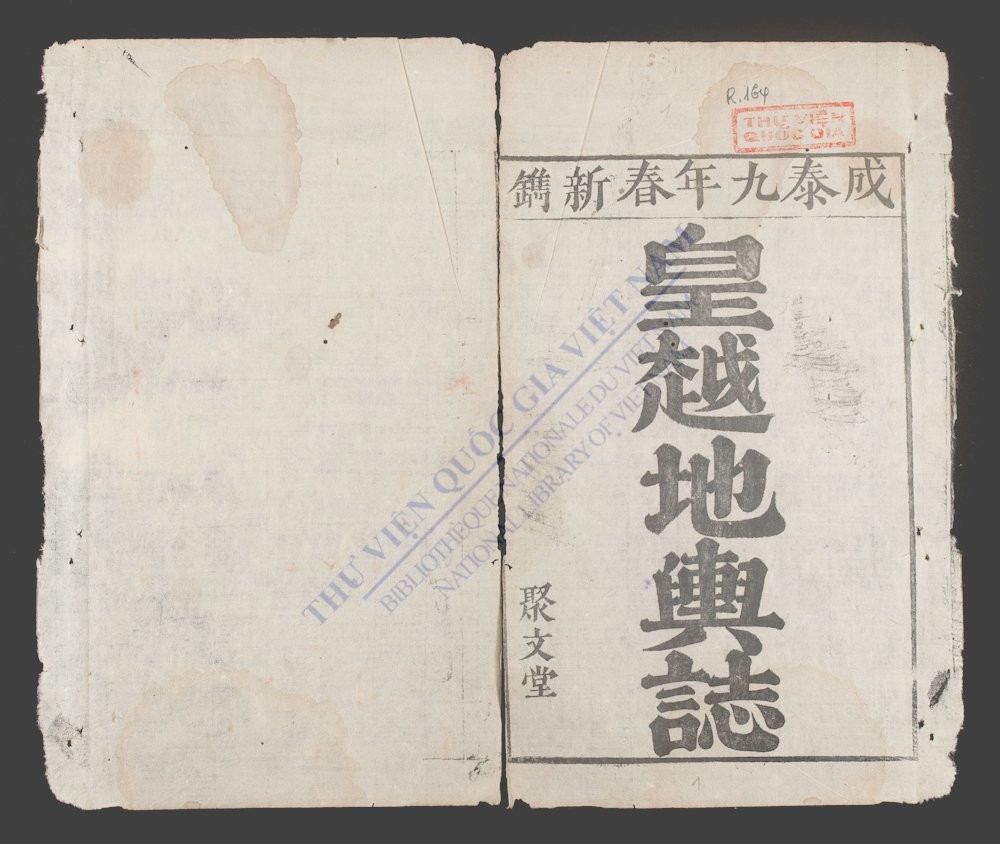 R.164
THƯ VIỆN
QUỐC GIA
成泰九年春新鐫
皇越地輿誌
聚文堂
THƯ VIỆN QUỐC GIA VIỆT NAM
BIBLIOTHÈQUE NATIONALE DU VIETNAM
NATIONAL LIBRARY OF VIETNAM
1